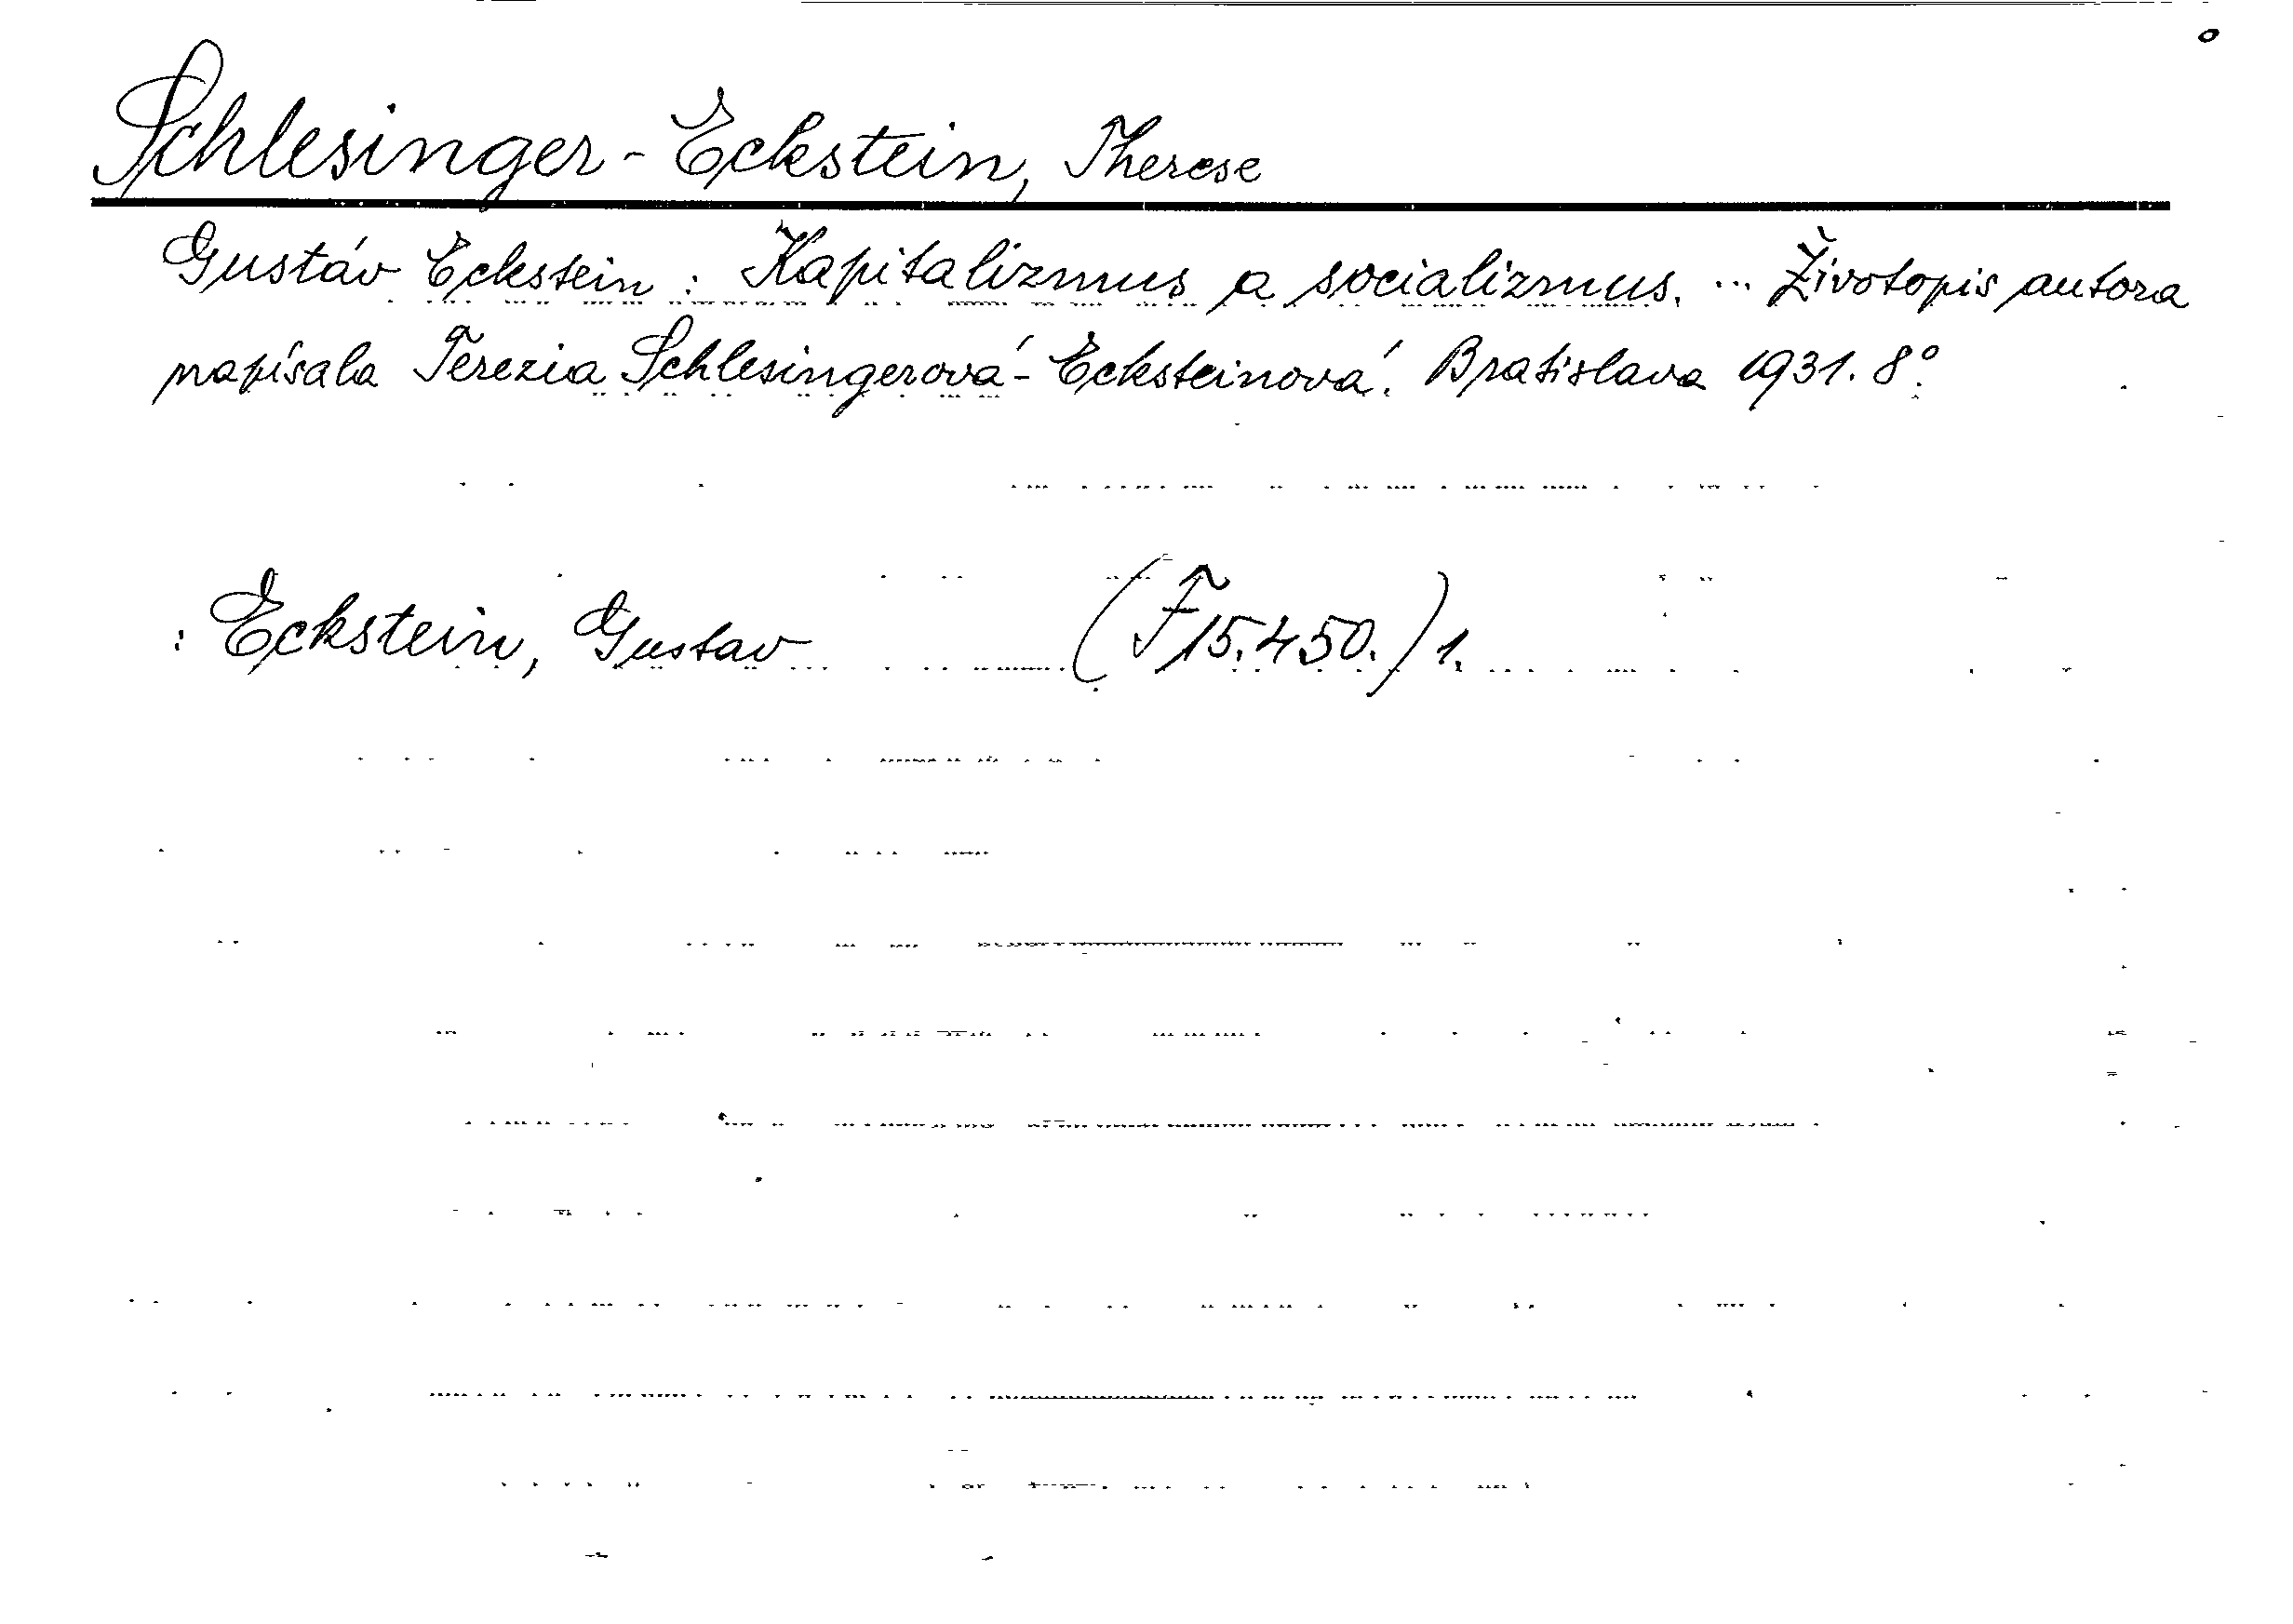 Schlesinger-Eckstein, Therese
Gustáv Eckstein: Kapitalizmus a socializmus. ... Životopis autora
napísala Terezia Schlesingerová-Ecksteinová. Bratislava 1931. 8°.
: Eckstein, Gustav (F 15.450.) 1.